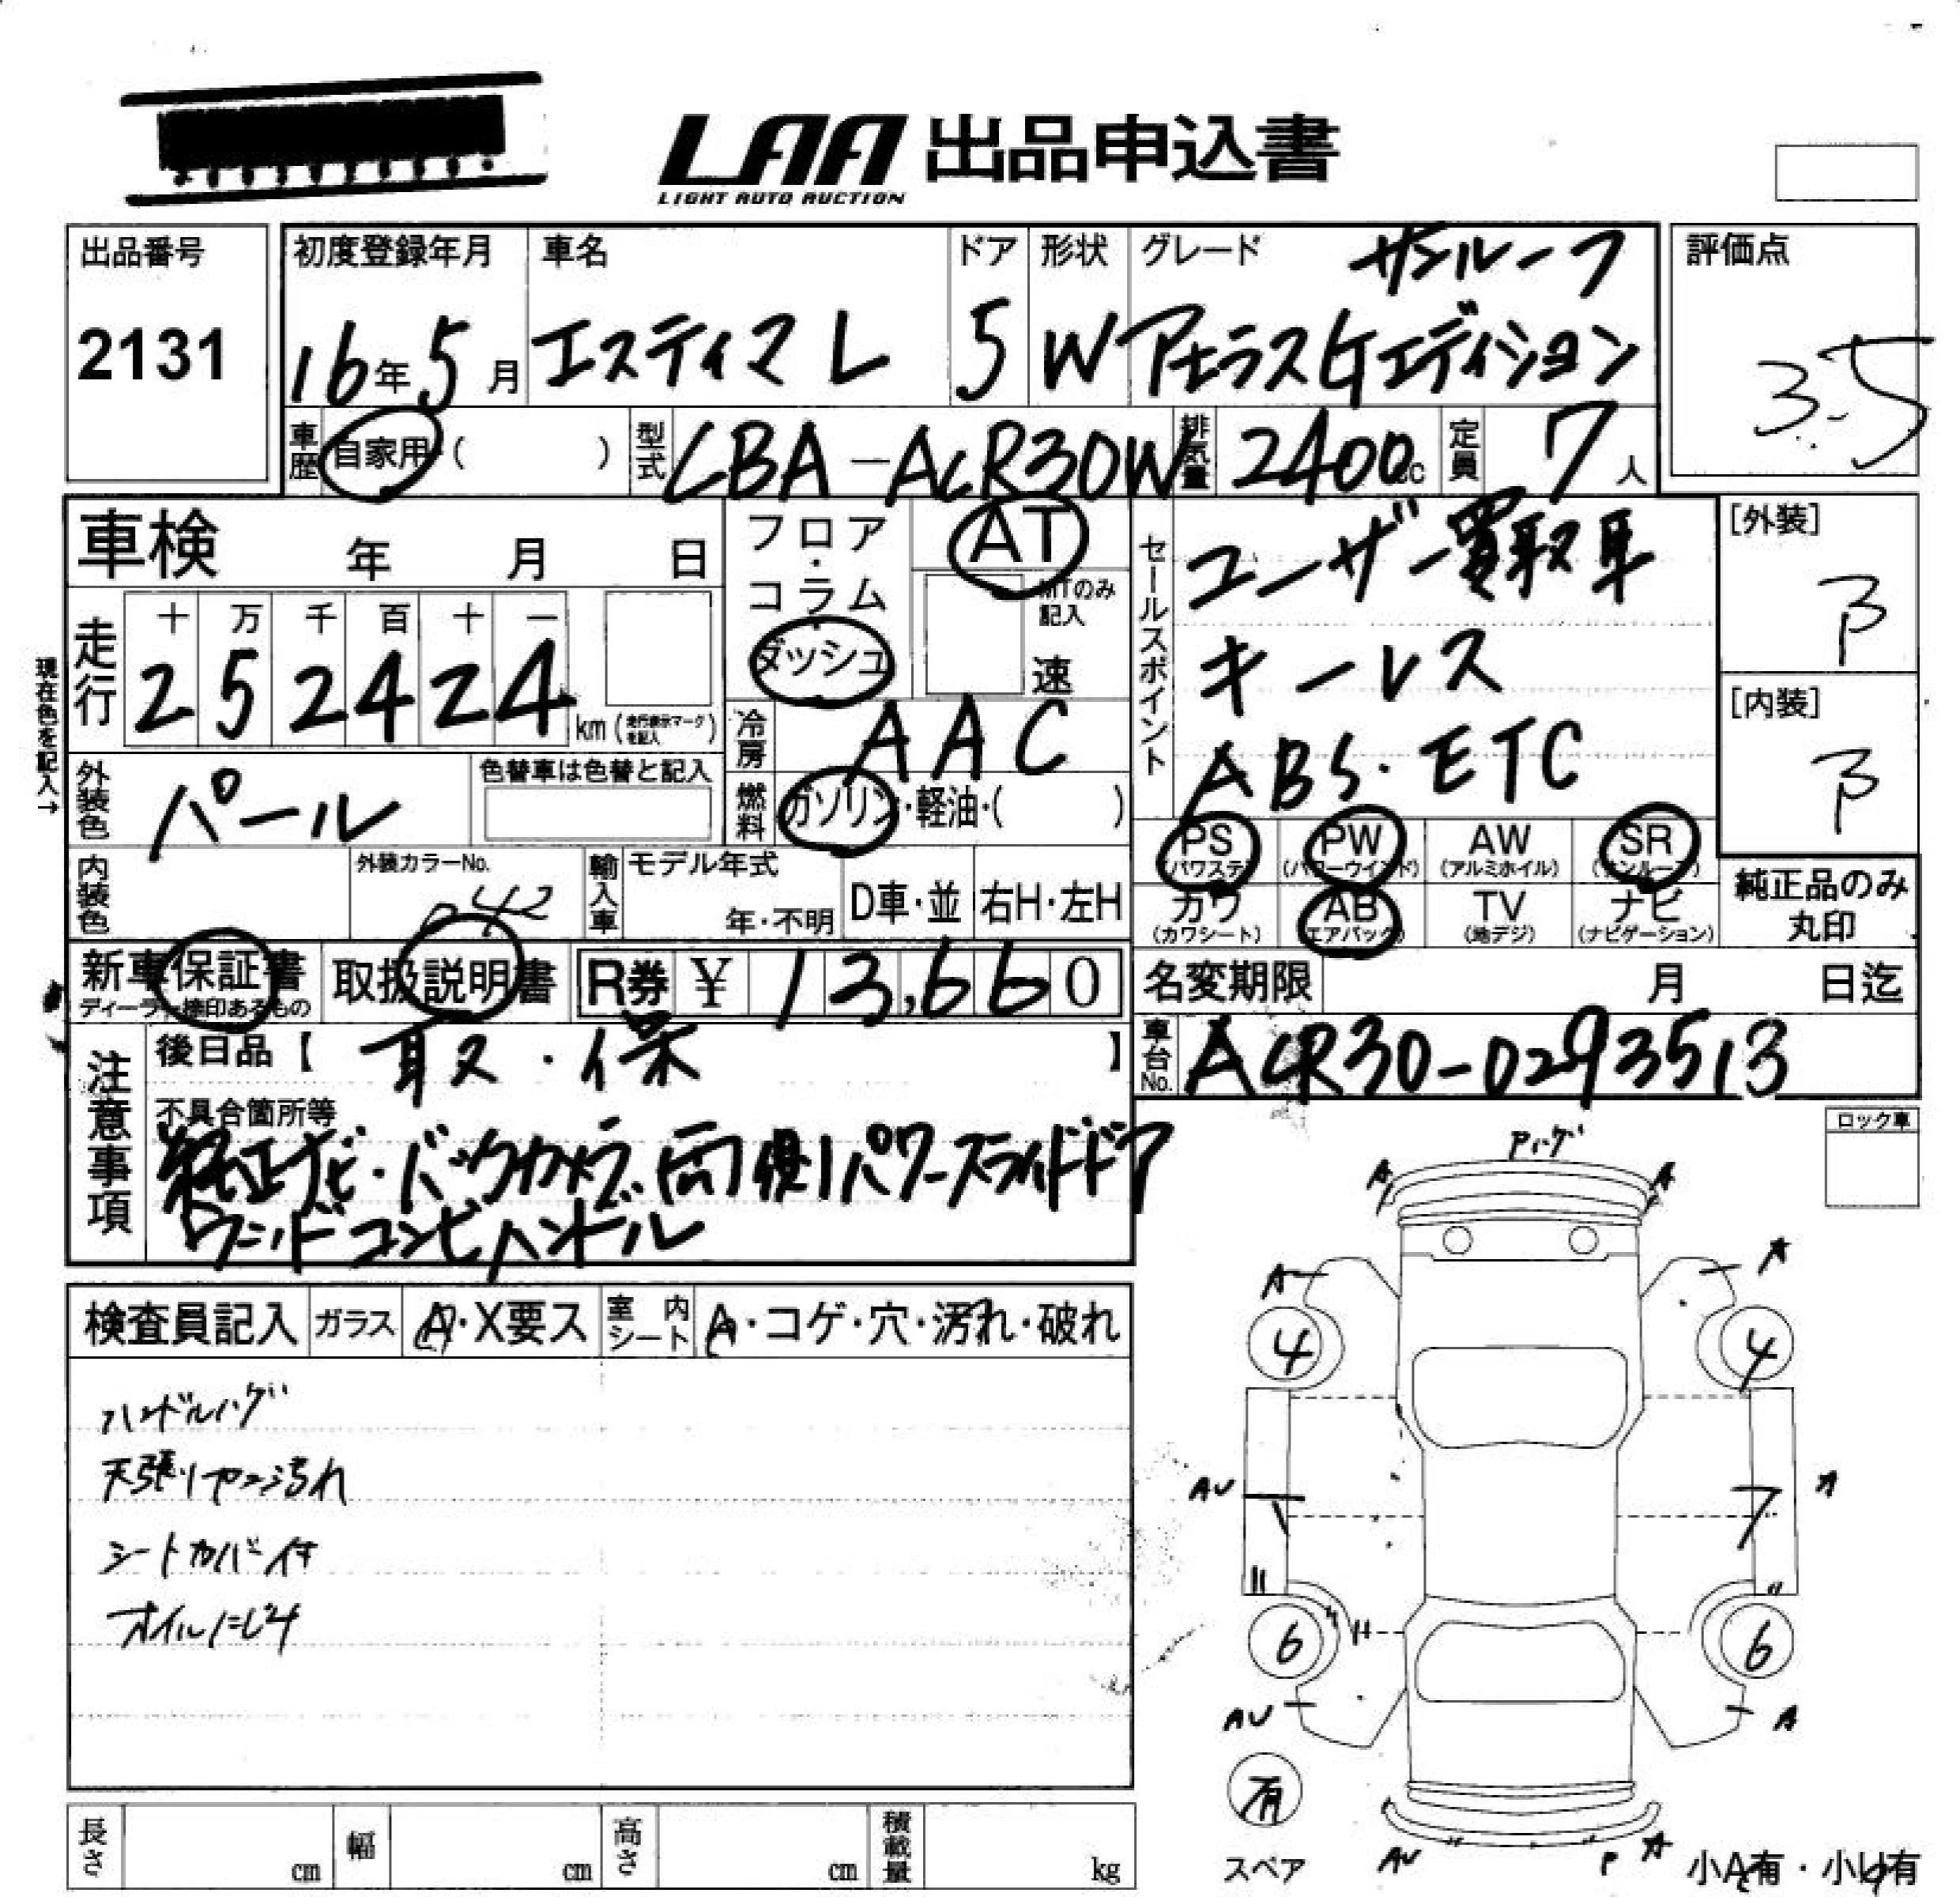 LAA 出品申込書
LIGHT AUTO AUCTION
出品番号
2131
初度登録年月
16年5月
車名
エスティマ L
ドア
5
形状
W
グレード
サンルーフ
アエラスGエディション
評価点
3.5
車歴
自家用・( )
型式
CBA-ACR30W
排気量
2400cc
定員
7人
車検 年 月 日
フロア・コラム
ダッシュ
AT
MTのみ記入
速
セールスポイント
ユーザー買取車
キーレス
ABS・ETC
[外装]
B
[内装]
B
現在色を記入→
走行
十 万 千 百 十 一
2 5 2 4 2 4
km (走行表示マークを記入)
冷房
AAC
燃料
ガソリン・軽油・( )
外装色
パール
色替車は色替と記入
内装色
外装カラーNo.
042
輸入車
モデル年式
年・不明
D車・並
右H・左H
PS
(パワステ)
PW
(パワーウインド)
AW
(アルミホイル)
SR
(サンルーフ)
カワ
(カワシート)
AB
(エアバック)
TV
(地デジ)
ナビ
(ナビゲーション)
純正品のみ
丸印
新車保証書
ディーラー捺印あるもの
取扱説明書
R券 ¥ 13,660
名変期限 月 日迄
車台No.
ACR30-0293513
注意事項
後日品【 取・保 】
不具合箇所等
純正ナビ・バックカメラ・両側パワースライドドア
ウッドコンビハンドル
ロック車
検査員記入
ガラス
A・X要ス
室内シート
A・コゲ・穴・汚れ・破れ
ハンドルハゲ
天張りヤニ汚れ
シートカバー付
オイルニじミ
A
A
A
A
4
4
AU
A
6
6
AU
A
有
スペア
AU
P
A
小A有・小U有
長さ cm
幅 cm
高さ cm
積載量 kg